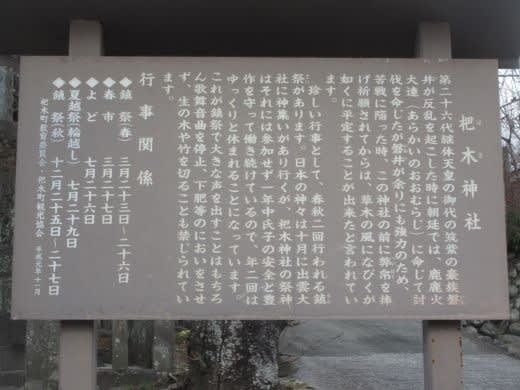 杷木神社
はき
第二十六代継体天皇の御代の筑紫の豪族磐
井が反乱を起こした時に朝廷では、麁鹿火
大連（あらかいのおおむらじ）に命じて討
伐を命じたが磐井が余りにも強力のため、
苦戦に陥った時、この神社の前に弊帛を捧
げ祈願されてからは、草木の風になびくが
如くに平定することが出来たと言われてい
ます。
珍しい行事として、春秋二回行われる鎮
祭があります。日本の神々は十月に出雲大
社に神集いがあり行くが、杷木神社の祭神
はそれには参加せず一年中氏子の安全と豊
作を守って働き続けているので、年二回は
ゆっくりと休まれることになっています。
これが鎮祭で大きな声を出すことはもちろ
ん歌舞音曲を停止、下肥等のにおいをさせ
ず、生の木や竹を切ることも禁じられてい
ます。
行事関係
◆鎮祭（春） 三月二十三日～二十六日
◆春市 三月二十七日
◆よど 七月二十六日
◆夏越祭（輪越し） 七月二十九日
◆鎮祭（秋） 十二月二十五日～二十七日
杷木町教育委員会 杷木町観光協会 平成元年十一月